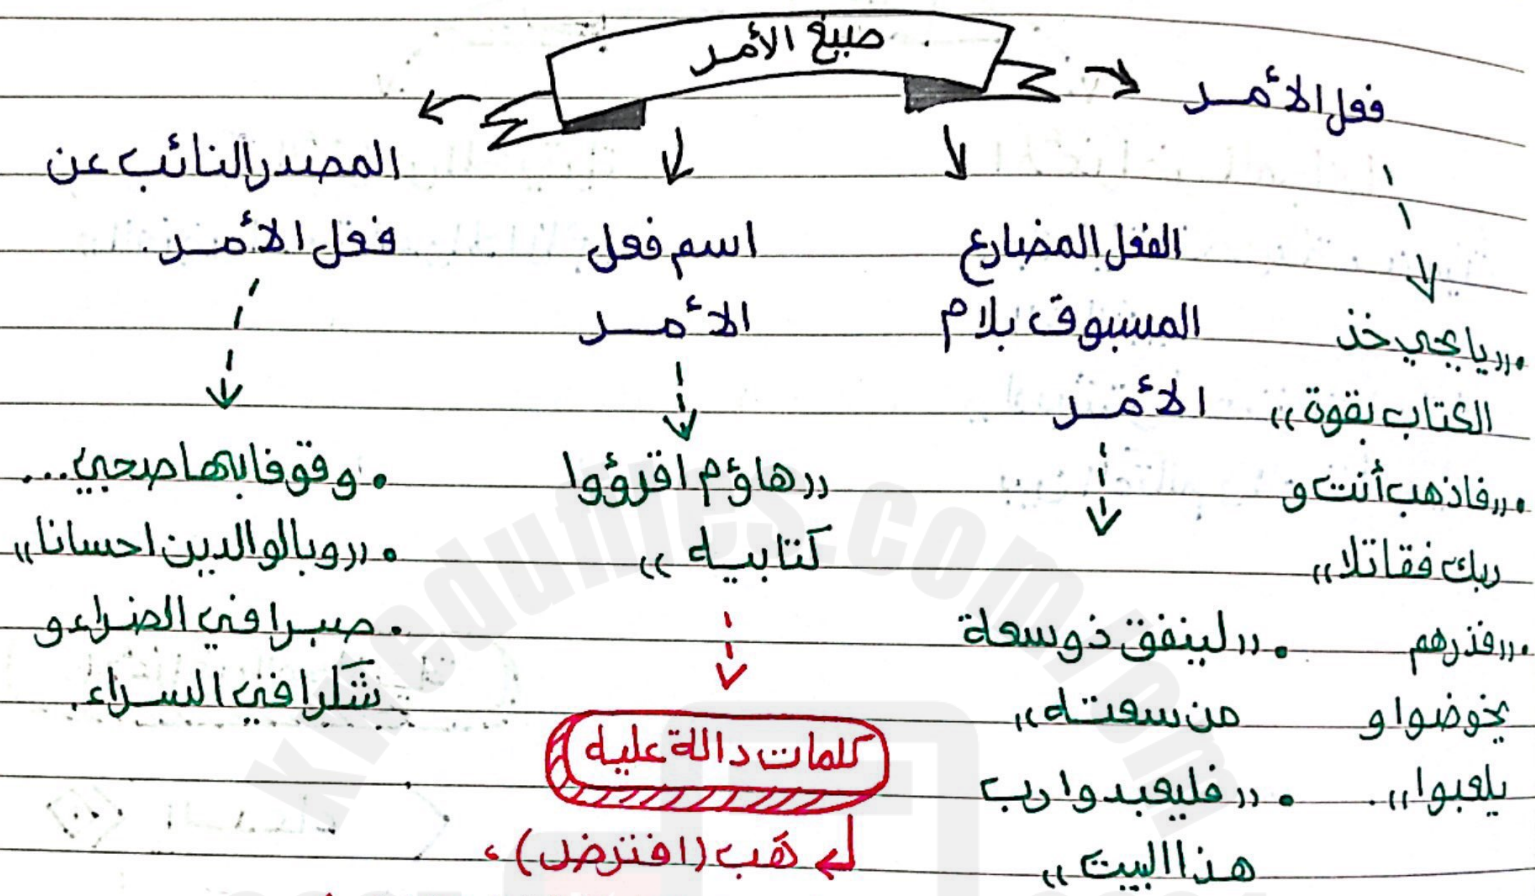 صيغ الأمر
فعل الأمر
•((يا يحيى خذ
الكتاب بقوة))
•((فاذهب أنت و
ربك فقاتلا))
•((فذرهم
يخوضوا و
يلعبوا)).
الفعل المضارع
المسبوق بلام
الأمر
•((لينفق ذو سعة
من سعته))
•((فليعبدوا رب
هذا البيت))
اسم فعل
الأمر
((هاؤم اقرؤوا
كتابيه))
كلمات دالة عليه
هَب (افترض)،
المصدر النائب عن
فعل الأمر.
• وقوفا بها صحبي...
•((وبالوالدين احسانا))
• صبرا في الضراء و
شكرا في السراء.
kwedufiles.com/om